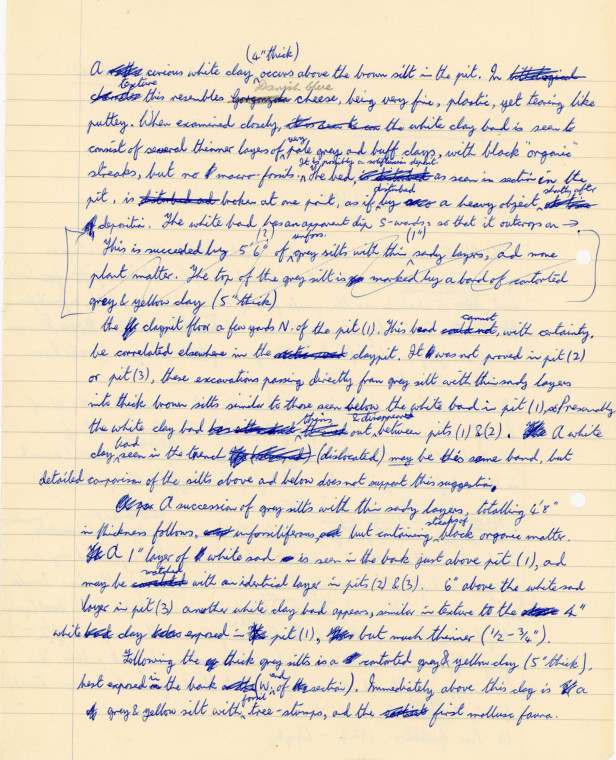 (4" thick)
A curious white clay occurs above the brown silt in the pit. In
texture Danish blue
this resembles cheese, being very fine, plastic, yet tearing like
puttey. When examined closely, the white clay band is seen to
consist of several thinner layers of very pale grey and buff clays, with black "organic"
It is possibly a solifluxion deposit
streaks, but no macro-fossils. The bed, as seen in section in the
disturbed shortly after
pit, is broken at one point, as if by a heavy object,
deposition. The white band has an apparent dip S-wards, so that it outcrops on →
(?) unfoss. (1")
This is succeeded by 5'6" of grey silts with thin sandy layers, and more
plant matter. The top of the grey silt is marked by a band of contorted
grey & yellow clay (5" thick)
the claypit floor a few yards N. of the pit (1). This band cannot, with certainty,
be correlated elsewhere in the claypit. It was not proved in pit (2)
or pit (3), these excavations passing directly from grey silt with thin sandy layers
into thick brown silts similar to those seen below the white band in pit (1). Presumably
thins & disappears
the white clay band out between pits (1) & (2). A white
clay band seen in the trench (dislocated) may be this same band, but
detailed comparison of the silts above and below does not support this suggestion.
A succession of grey silts with thin sandy layers, totalling 4'8"
in thickness follows, unfossiliferous, but containing streaks of black organic matter.
A 1" layer of white sand is seen in the bank just above pit (1), and
may be matched with an identical layer in pits (2) & (3). 6" above the white sand
layer in pit (3) another white clay band appears, similar in texture to the 4"
white clay exposed in pit (1), but much thinner (1/2 - 3/4").
Following the thick grey silts is a contorted grey & yellow clay (5" thick),
best exposed in the bank (W. end of section). Immediately above this clay is a
grey & yellow silt with fossil tree-stumps, and the first mollusc fauna.